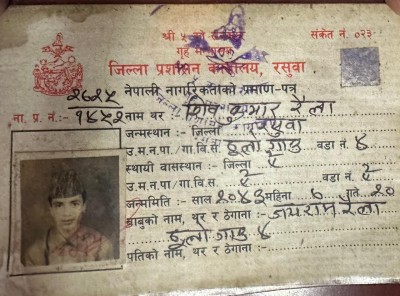 श्री ५ को सरकार
संकेत नं. ०२३
गृह मन्त्रालय
जिल्ला प्रशासन कार्यालय, रसुवा
नेपाली नागरिकताको प्रमाण-पत्र
ना. प्र. नं.:- १४५२ नाम थर :- शिव कुमार रेला
जन्मस्थान :- जिल्ला रसुवा
उ.म.न.पा./गा.वि.स. ठूलो गाउँ वडा नं. ४
स्थायी वासस्थान :- जिल्ला ऐ
उ.म.न.पा./गा.वि.स. ऐ वडा नं. ऐ
जन्ममिति :- साल २०४३ महिना ७ गते २०
बाबुको नाम, थर र ठेगाना :- जयराम रेला
ठूलो गाउँ ४
पतिको नाम, थर र ठेगाना :-